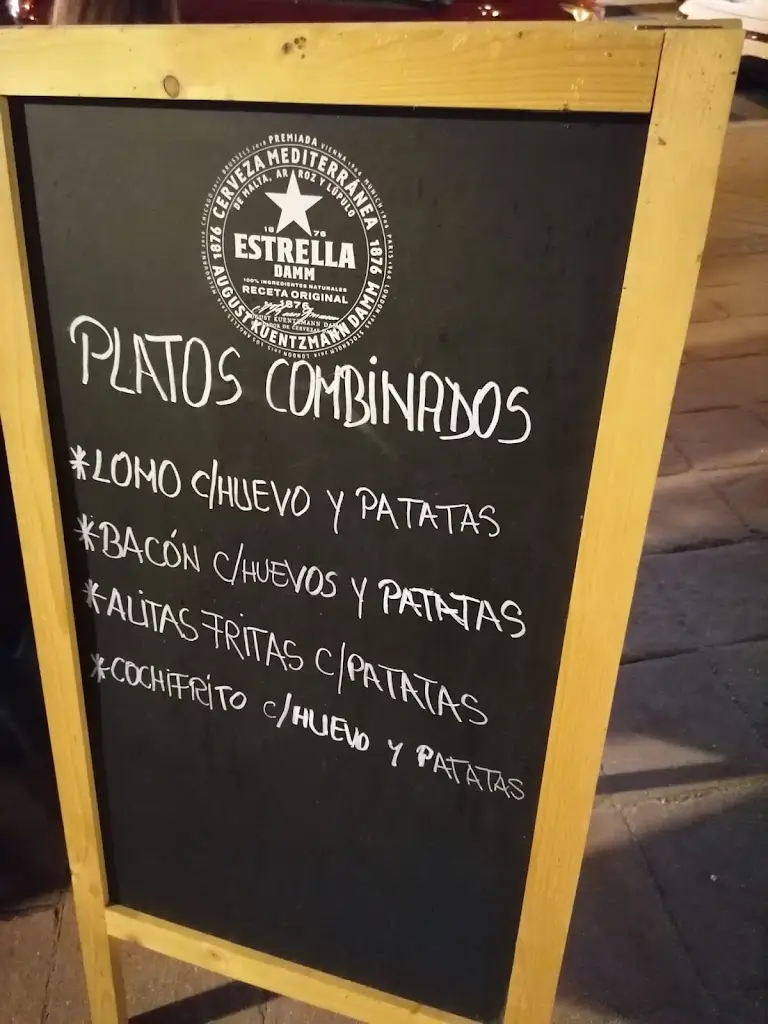 PREMIADA
CERVEZA MEDITERRÁNEA
DE MALTA, ARROZ Y LÚPULO
1876
1876
18 76
ESTRELLA
DAMM
100% INGREDIENTES NATURALES
RECETA ORIGINAL
1876
AUGUST KUENTZMANN DAMM
PLATOS COMBINADOS
*LOMO C/HUEVO Y PATATAS
*BACÓN C/HUEVOS Y PATATAS
*ALITAS FRITAS C/PATATAS
*COCHIFRITO C/HUEVO Y PATATAS